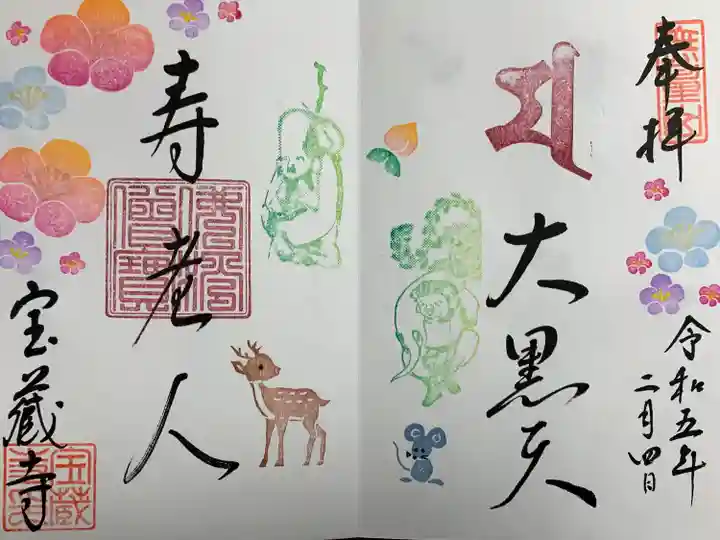 奉拝
令和五年
二月四日
大黒天
寿老人
佛法僧寶
宝蔵寺